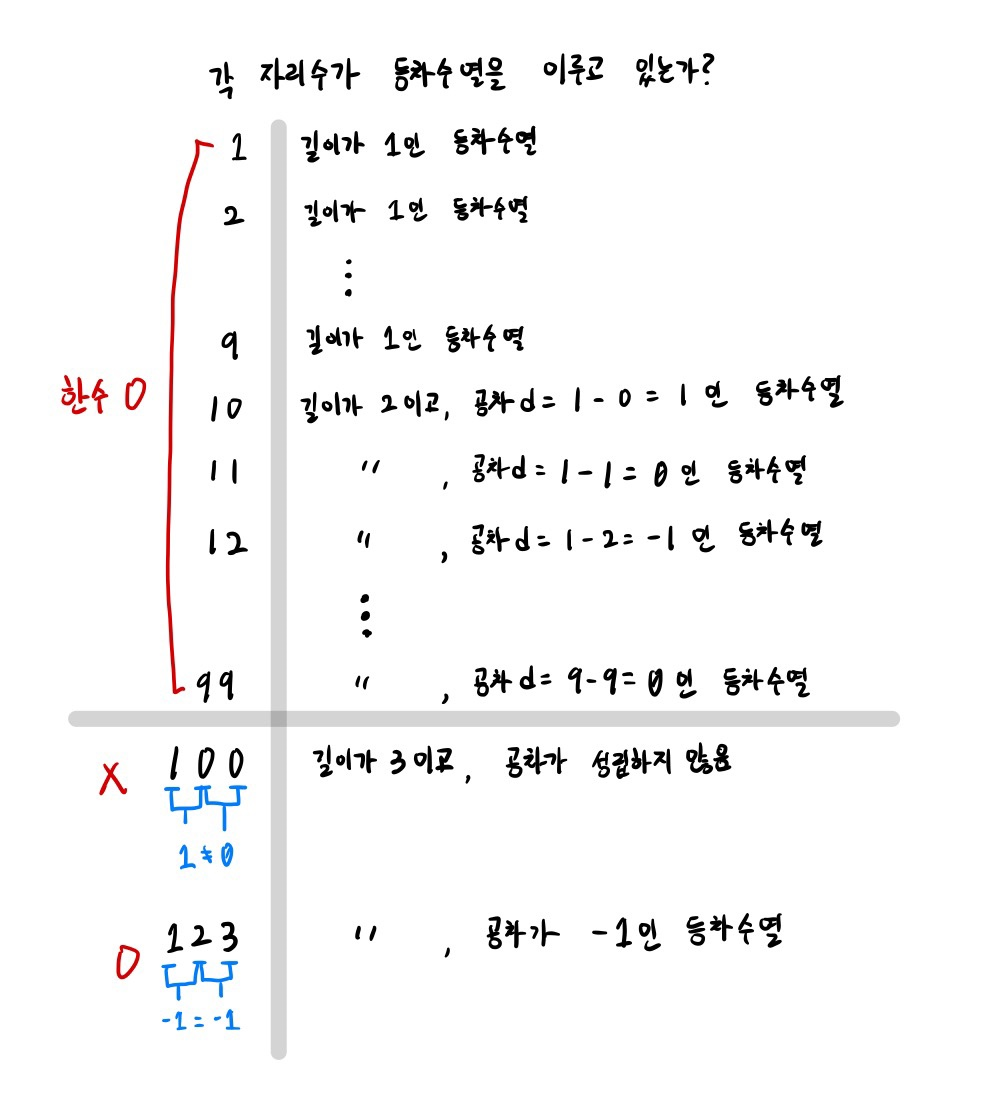 각 자리수가 등차수열을 이루고 있는가?
1 길이가 1인 등차수열
2 길이가 1인 등차수열
⋮
9 길이가 1인 등차수열
한수 O
10 길이가 2이고, 공차 d = 1 - 0 = 1 인 등차수열
11 〃 , 공차 d = 1 - 1 = 0 인 등차수열
12 〃 , 공차 d = 1 - 2 = -1 인 등차수열
⋮
99 〃 , 공차 d = 9 - 9 = 0 인 등차수열
X 100 길이가 3이고, 공차가 성립하지 않음
1 ≠ 0
O 123 〃 , 공차가 -1인 등차수열
-1 = -1